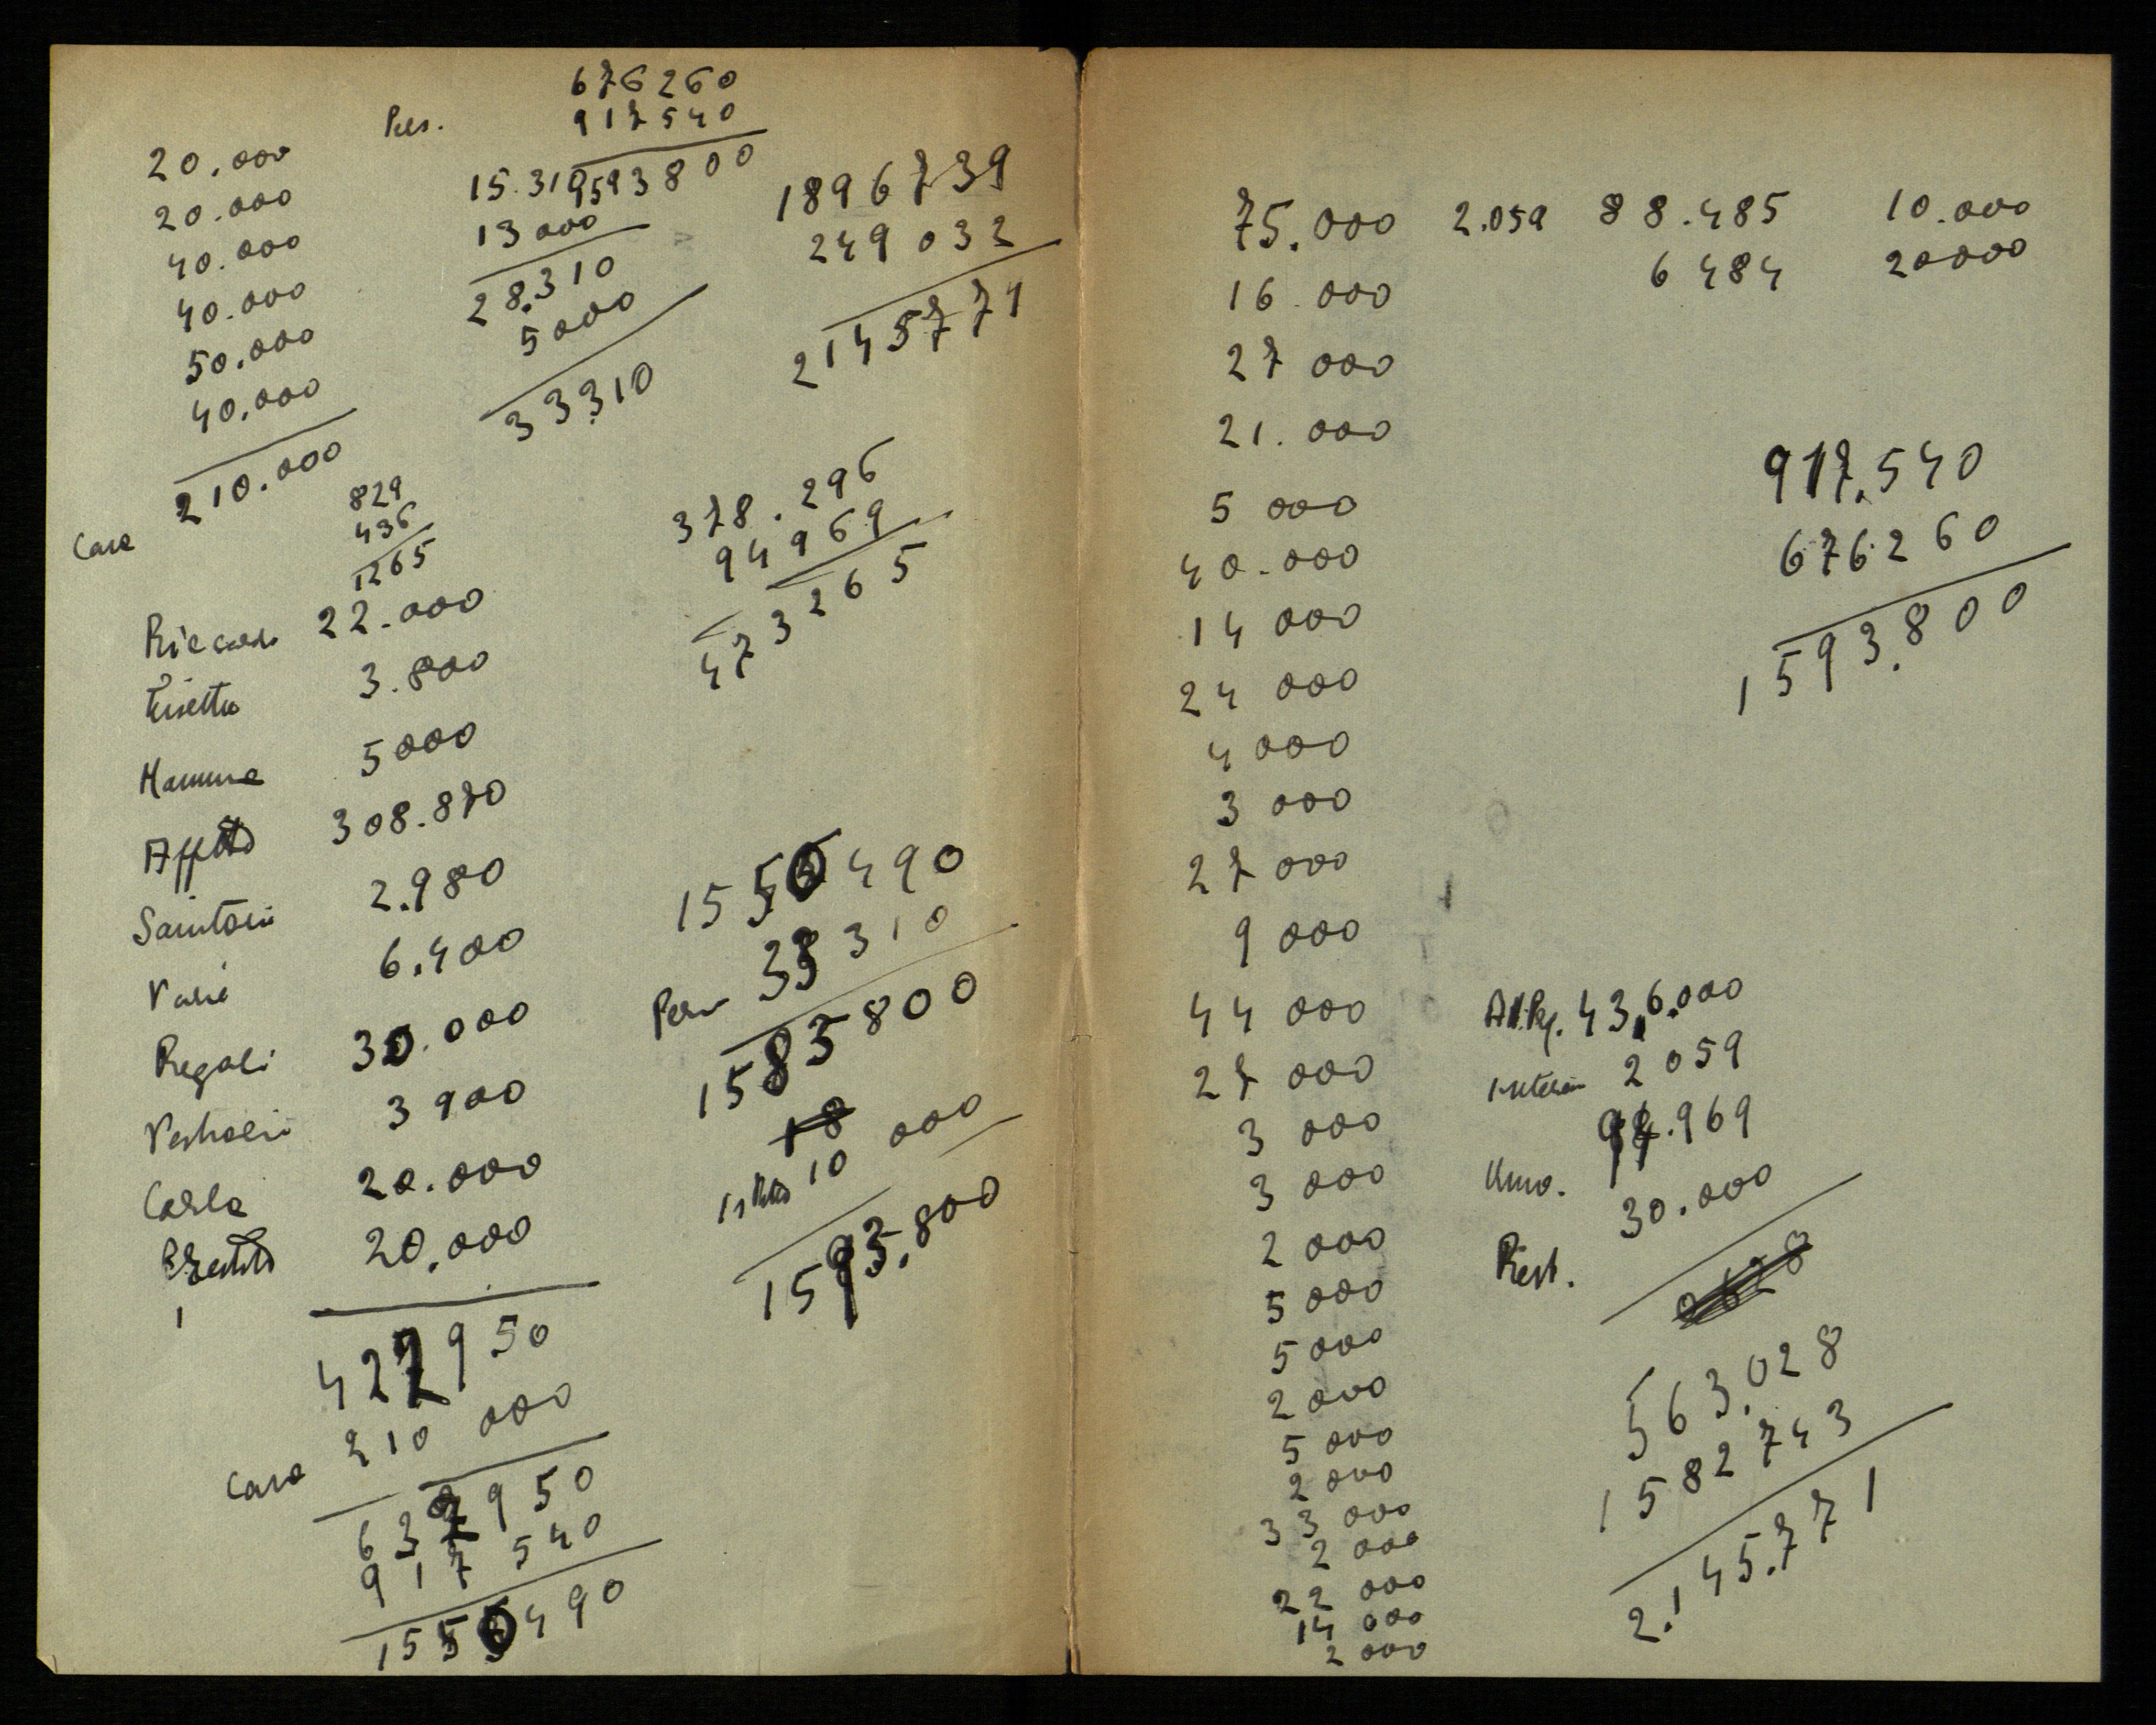 676260
917540
1593800
Pers.
20.000
20.000
40.000
40.000
50.000
40.000
210.000
Casa
15.310
13000
28.310
5000
33310
1896739
249032
2145771
829
436
1265
378.296
94969
473265
Riccardo 22.000
3.800
Mamma 5000
Affitto 308.870
2.980
Varie 6.400
Regali 30.000
3900
Carla 20.000
20.000
422950
Casa 210 000
632950
917 540
1550490
1550490
33310
1583800
10 000
1593.800
75.000 2.059 88.485 10.000
6484 20000
16.000
27 000
21.000
5 000
40.000
14 000
24 000
4 000
3 000
27 000
9 000
44 000
27 000
3 000
3 000
2 000
5 000
5 000
2 000
5 000
2 000
33 000
2 000
22 000
14 000
2 000
917.540
676260
1593.800
436.000
2059
94.969
30.000
Rest.
563.028
1582743
2.145.771